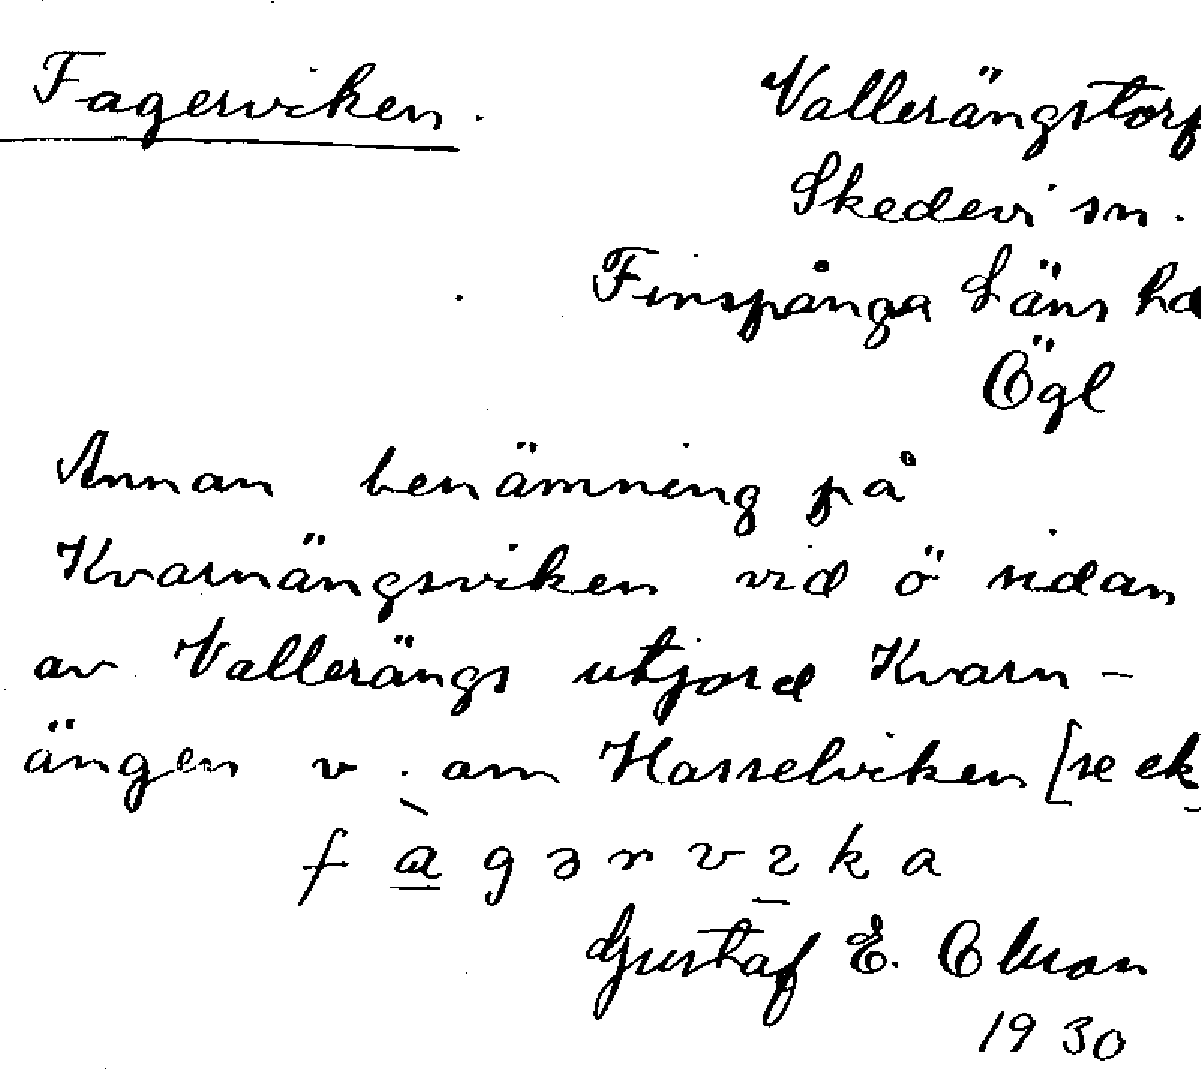 Fagerviken. Vallerängstorp
Skedevi sn.
Finspånga Läns hd
Ögl
Annan benämning på
Kvarnängsviken vid ö sidan
av Vallerängs utjord Kvarn-
ängen v. om Hasselviken [se ek
f a g ə r v ı k a
Gustaf E. Olsson
1930